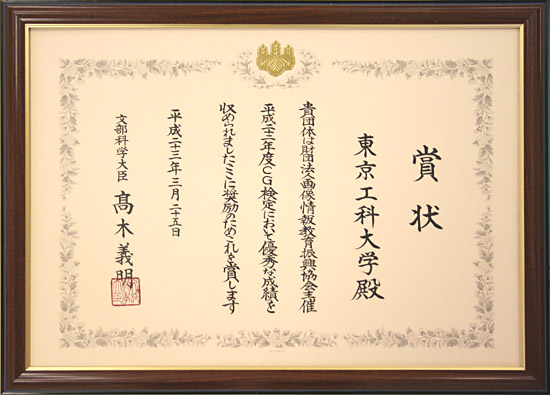 賞状
東京工科大学殿
貴団体は財団法人画像情報教育振興協会主催
平成二十二年度CG検定において優秀な成績を
収められましたここに奨励のためこれを賞します
平成二十三年三月二十五日
文部科学大臣 髙木義明